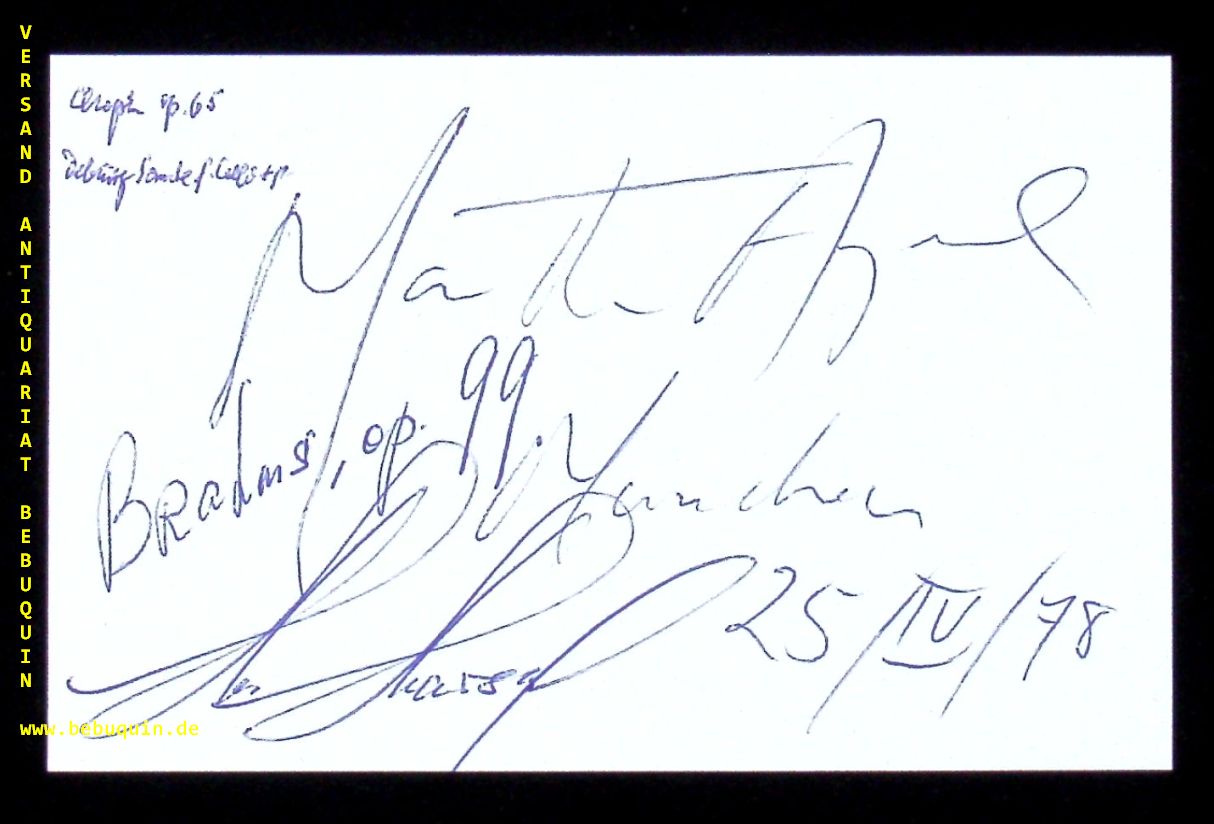 VERSAND ANTIQUARIAT BEBUQUIN
Chopin op. 65
Debussy Sonate f. Cello + P
Martha Argerich
Brahms, op. 99.
München
25/IV/78
www.bebuquin.de